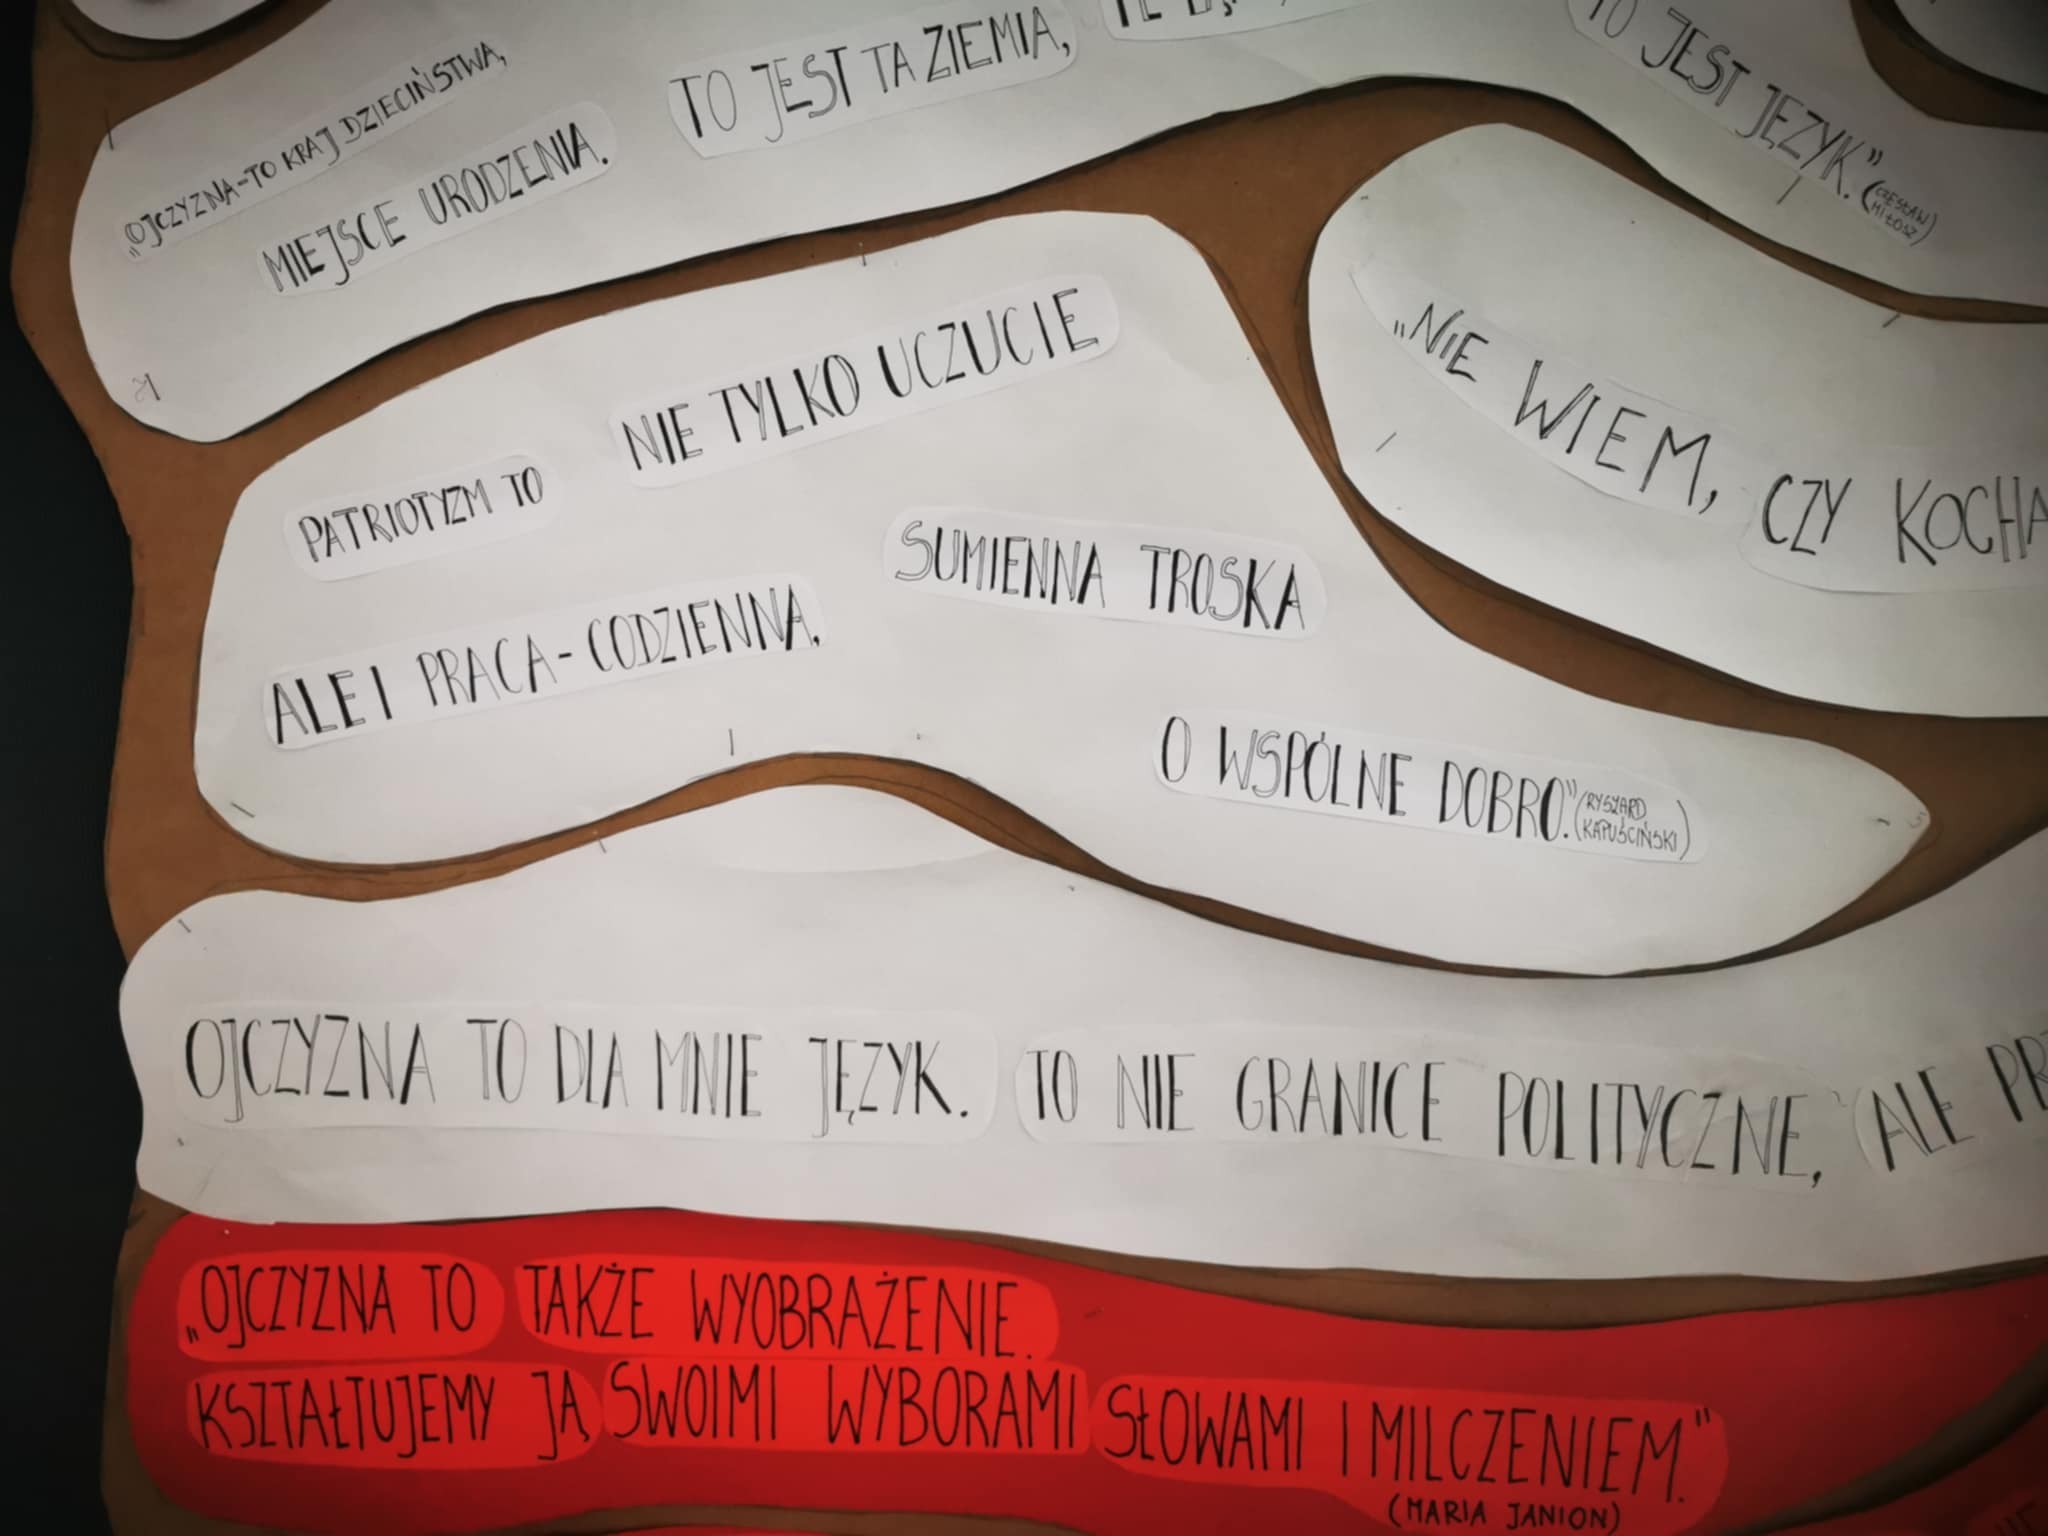 „OJCZYZNA-TO KRAJ DZIECIŃSTWA,
MIEJSCE URODZENIA.
TO JEST TA ZIEMIA,
TO JEST JĘZYK.” (CZESŁAW
MIŁOSZ)
PATRIOTYZM TO
NIE TYLKO UCZUCIE
ALE I PRACA-CODZIENNA,
SUMIENNA TROSKA
O WSPÓLNE DOBRO.” (RYSZARD
KAPUŚCIŃSKI)
„NIE WIEM, CZY KOCHA
OJCZYZNA TO DLA MNIE JĘZYK. TO NIE GRANICE POLITYCZNE, ALE
„OJCZYZNA TO TAKŻE WYOBRAŻENIE.
KSZTAŁTUJEMY JĄ SWOIMI WYBORAMI SŁOWAMI I MILCZENIEM.”
(MARIA JANION)